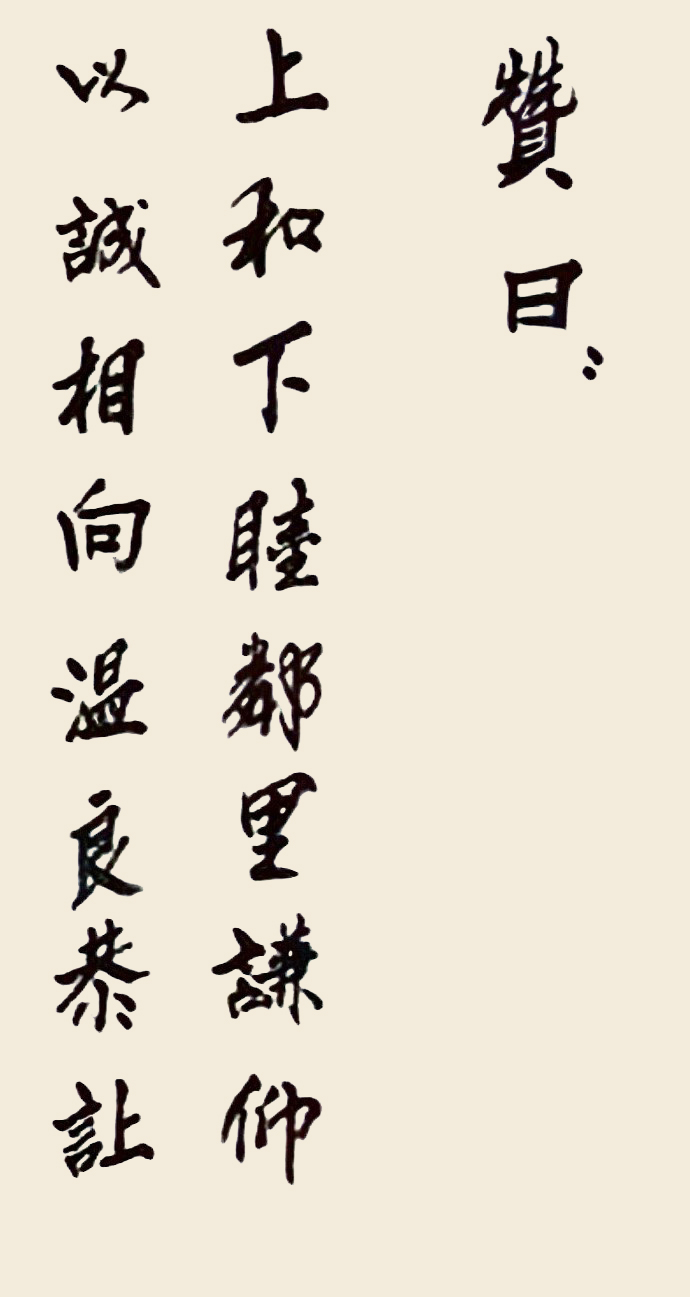 贊曰：
上和下睦鄰里謙仰
以誠相向温良恭让